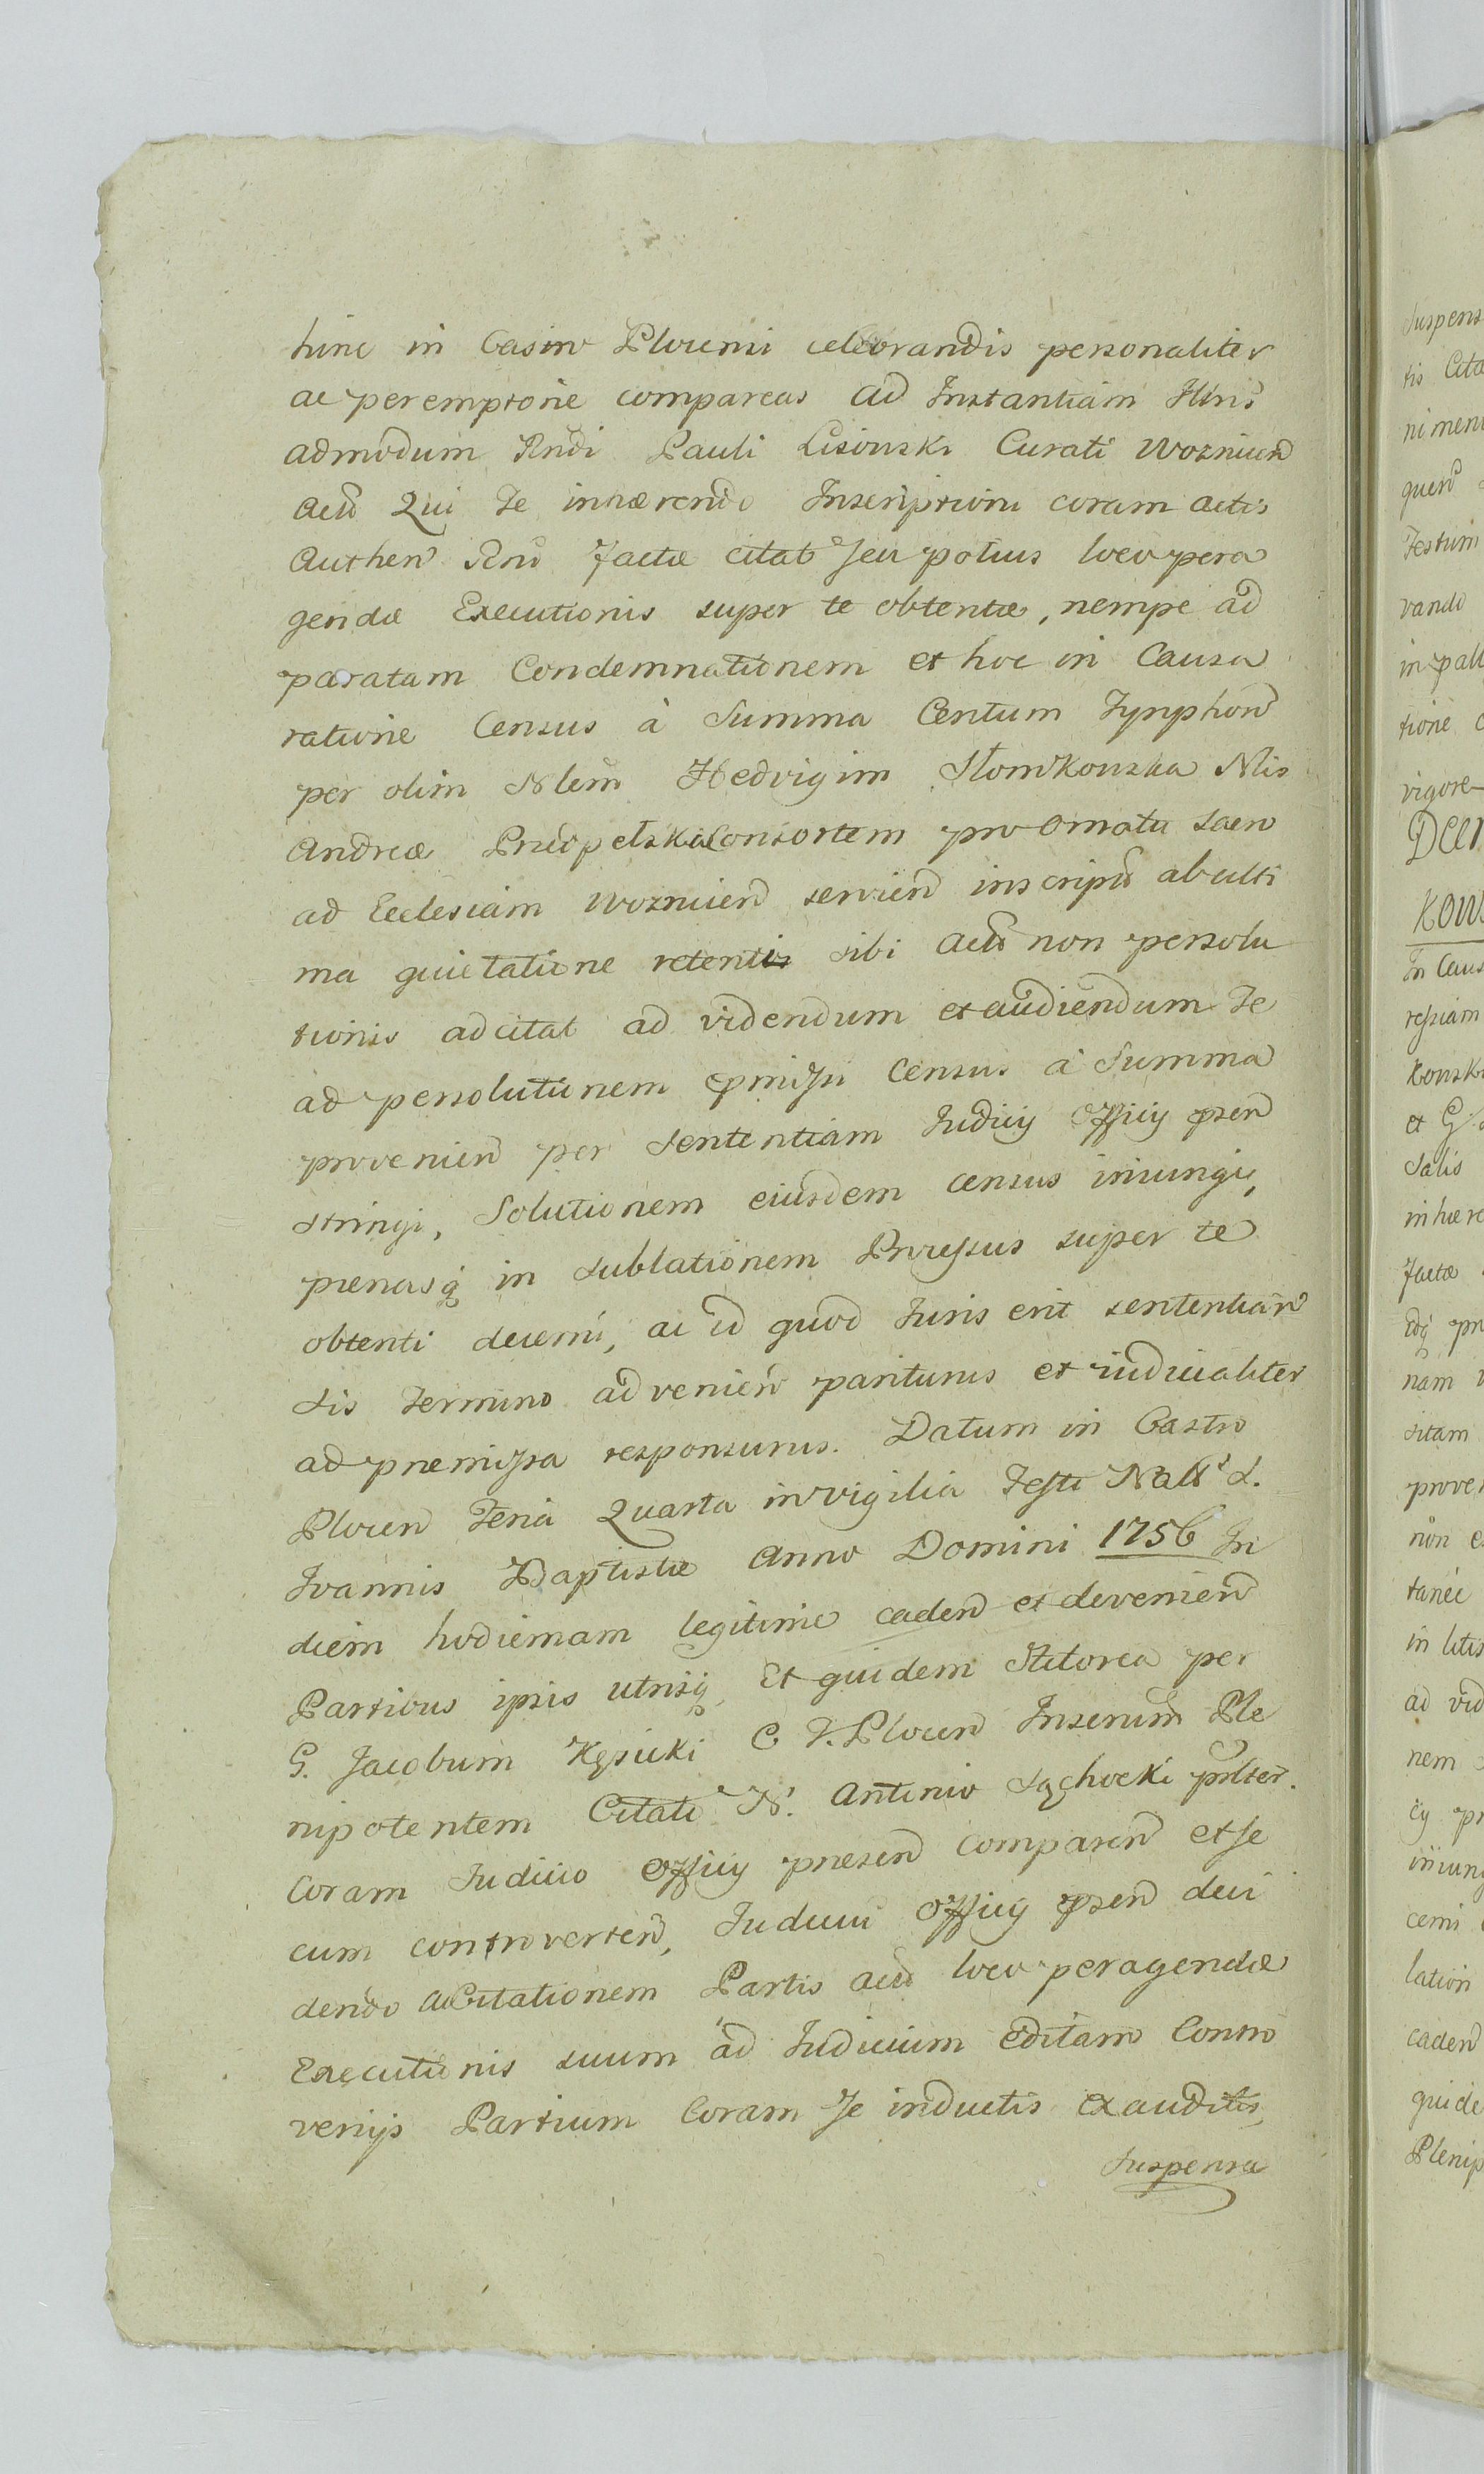 hinc in Castro Plocensi celebrandis personaliter
ac peremptorie compareas ad Instantiam Illris
admodum Rndi Pauli Lisowski Curati Woznicen
Act Qui Te inhærendo Inscriptioni coram actis
Authen factæ citat seu potius loco pera
gendæ Executionis super te obtentæ, nempe ad
paratam Condemnationem et hoc in Causa
ratione Census à Summa Centum Tynphon
per olim Nlem Hedvigim Słomkowska Nlis
Andreæ Consortem pro ornatu sacro
ad Ecclesiam Woznicen servien inscript ab ulti
ma quietatione retentis sibi Act non persolu
tionis adcitat ad videndum et audiendum Te
ad persolutionem pmissi Census à Summa
provenien per Sententiam Iudicij Officij psen
stringi, Solutionem eiusdem census iniungi,
penasq in sublationem Processus super te
obtenti decerni, ac id quod Iuris erit sententian
Sis Termino advenien pariturus et iudicialiter
ad præmissa responsurus. Datum in Castro
Plocen Feria Quarta in vigilia Festi Natt S.
Ioannis Baptistæ Anno Domini 1756 In
diem hodiernam legitime caden et devenien
Partibus ipsis utrisq Et quidem Actorea per
G. Jacobum Kęsicki C. T. Plocen Inserum Ple
nipotentem Citati N. Antonio Sąchocki psnlter.
Coram Iudicio Officij præsen Comparen et se
cum controverten, Iudicium Officij psen deci
dendo adCitationem Partis Act loco peragendæ
Executionis suum ad Iudicium Editam Contro
versijs Partium Coram Se inductis exauditis
Suspensa
Suspens
tis Cita
niment
quen
Festum
vando
in pall
tione c
vigore
Decr
Kow
In Caus
ressiam
kowski
et G
Salis
inhære
factæ
Edq pr
nam
sitam
prove
non e
tanee
in litis
ad vid
nem
ij pr
iniung
cerni
lation
caden
quide
Plenip